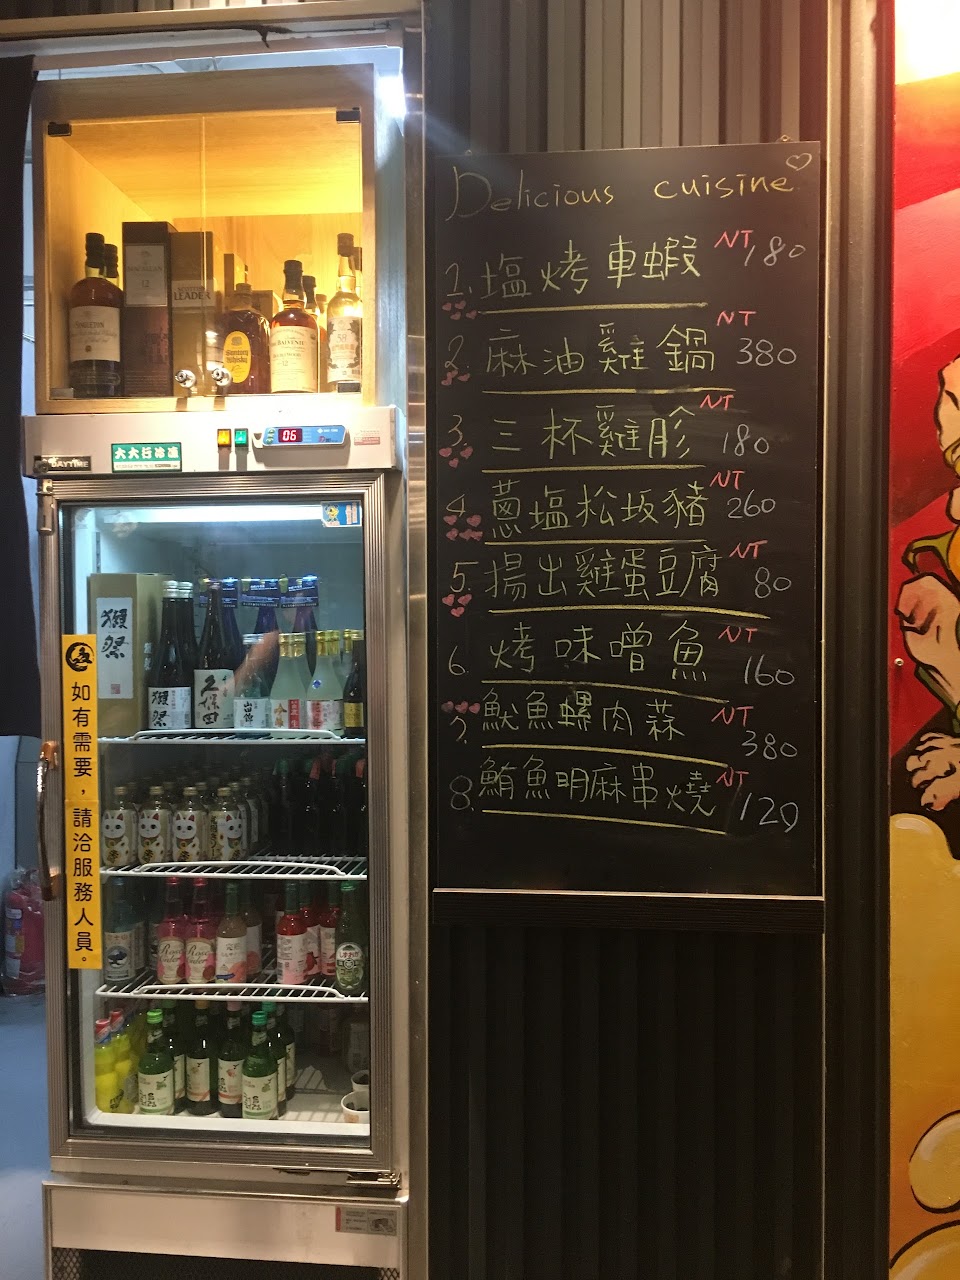 Delicious cuisine
1. 塩烤車蝦 NT 180
2. 麻油雞鍋 NT 380
3. 三杯雞胗 NT 180
4. 蔥塩松坂豬 NT 260
5. 揚出雞蛋豆腐 NT 80
6. 烤味噌魚 NT 160
7. 魷魚螺肉蒜 NT 380
8. 鮪魚明麻串燒 NT 120
MACALLAN
12
LEADER
Suntory
Whisky
BALVENIE
12
58
DAYTIME
大大行冷凍
06
獺祭
獺祭
久保田
如有需要，請洽服務人員。